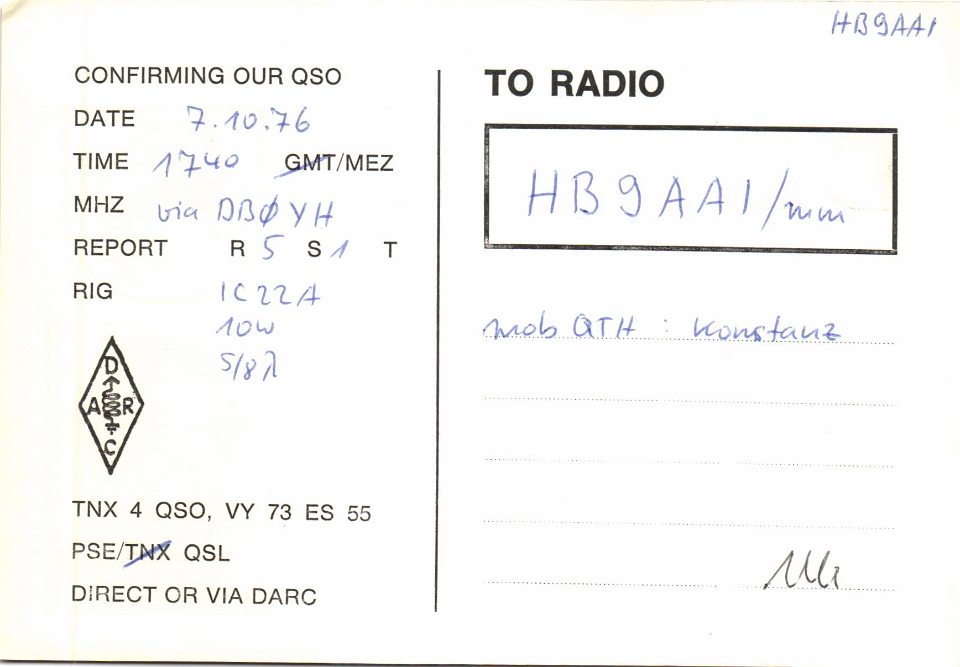 HB9AAI
CONFIRMING OUR QSO
DATE 7.10.76
TIME 1740 GMT/MEZ
MHZ via DBØYH
REPORT R 5 S 1 T
RIG IC22A
10W
5/8 λ
D
A R
C
TNX 4 QSO, VY 73 ES 55
PSE/TNX QSL
DIRECT OR VIA DARC
TO RADIO
HB9AAI/mm
mob QTH : Konstanz